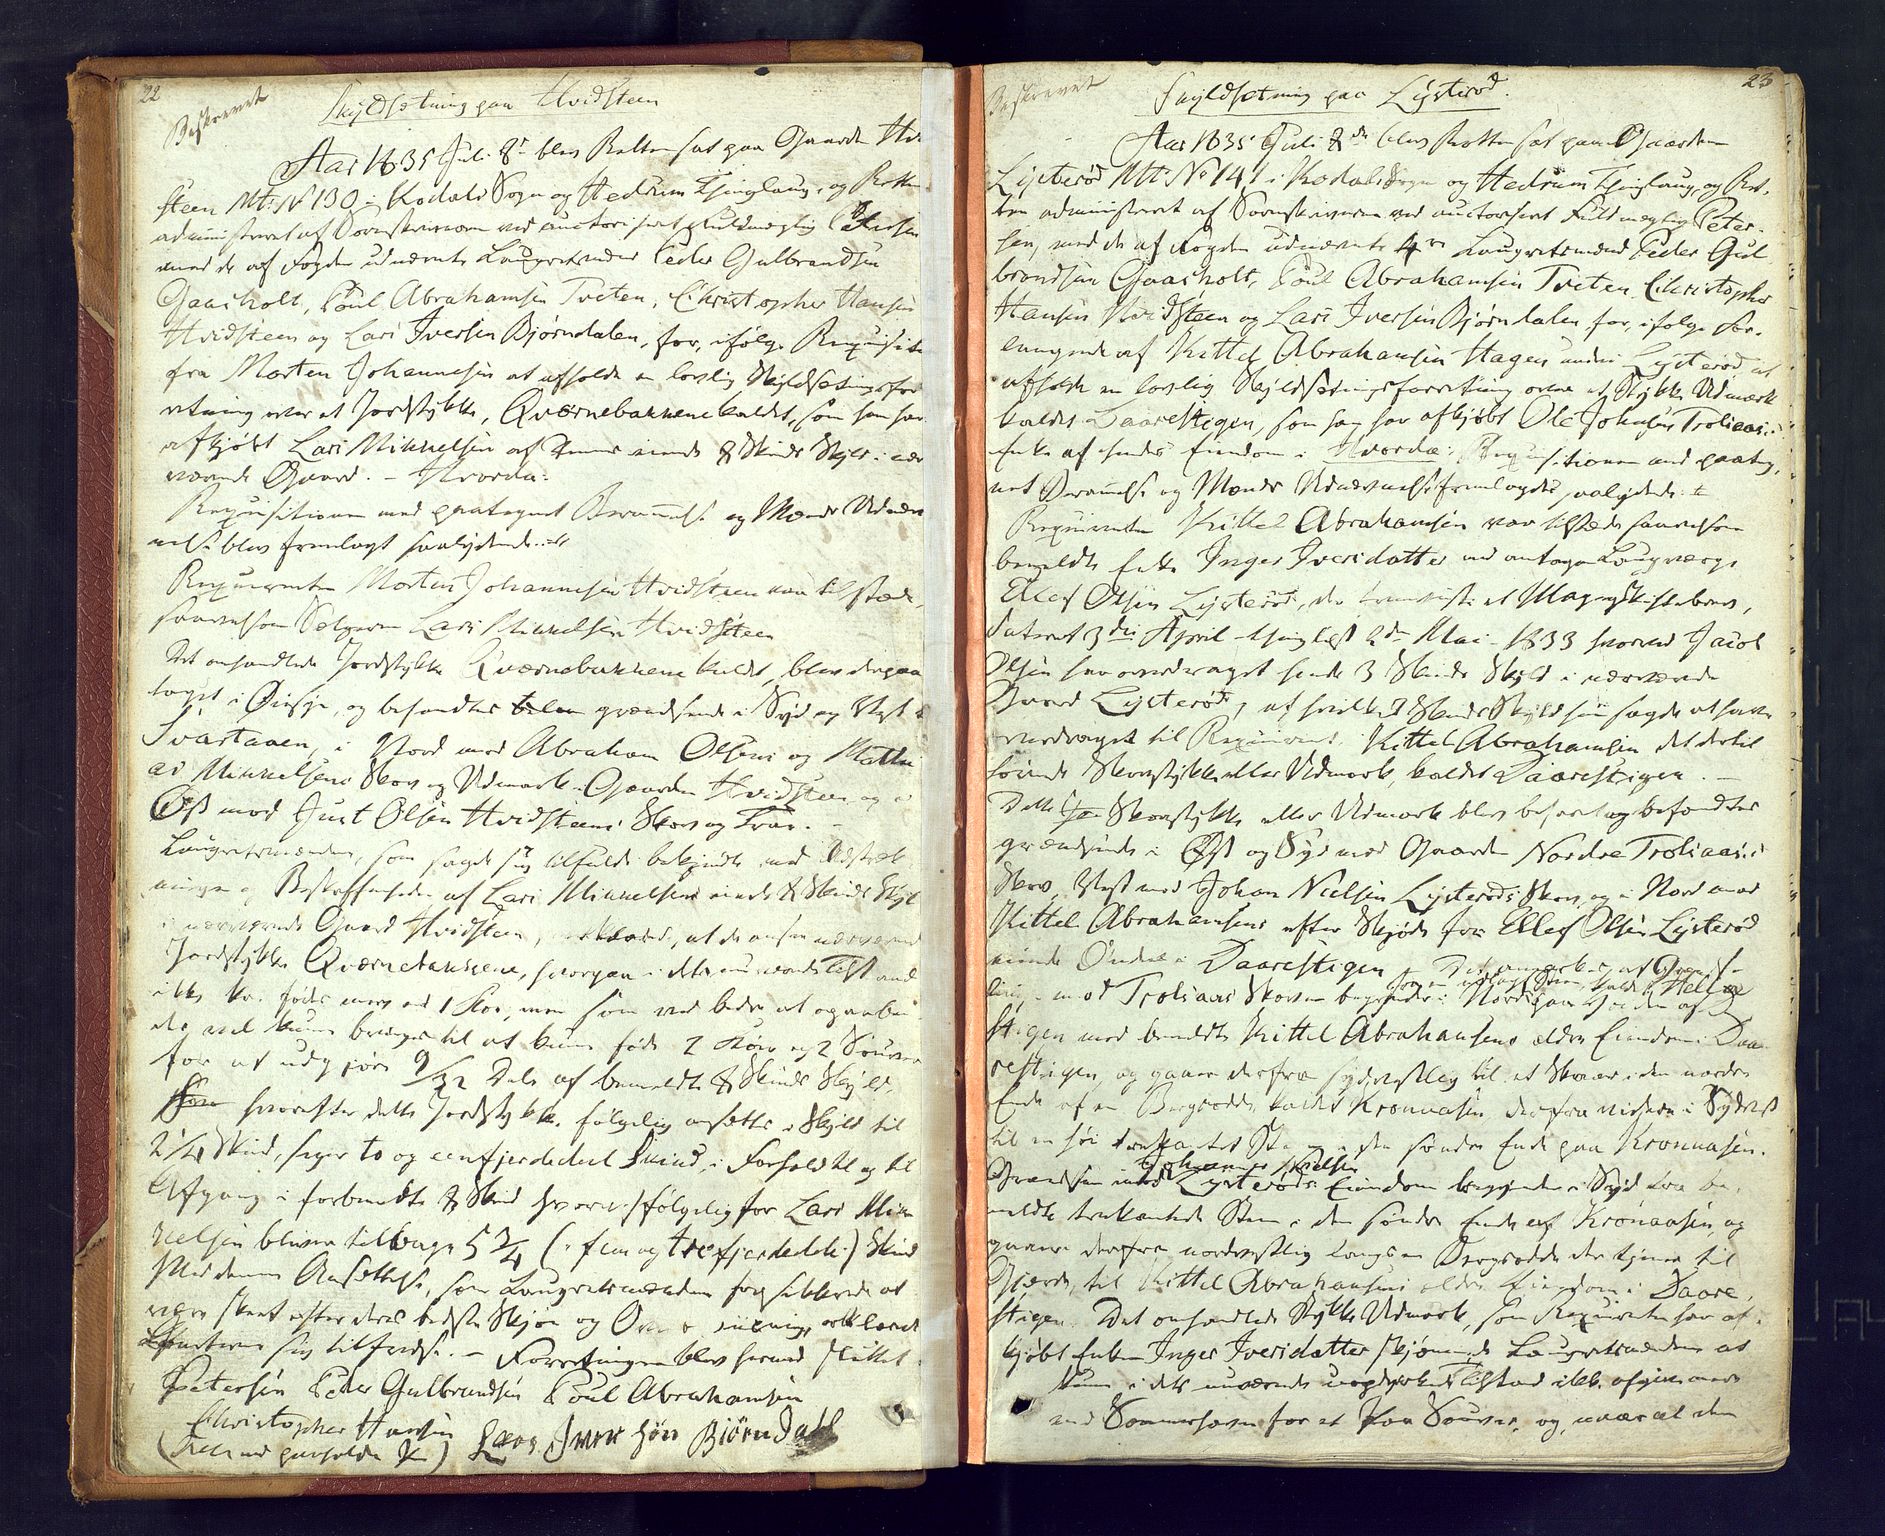 22
Beskrevet
Skyldsetning paa Hvidsteen
Aar 1835 Juli 8de blev Retten sat paa Gaarden Hvid
steen Mt: No 130 i Kodals Sogn og Hedrum Tinglaug, og Retten
administreret af Sorenskriveren ved auctoriseret Fuldmægtig Petersen
med de af Fogden udnævnte Laugrettesmænd Peder Gulbrandsen
Gaasholt, Poul Abrahamsen Tveten, Christopher Hansen
Hvidsteen og Lars Iversen Bjørndalen, for, ifølge Requisition
fra Morten Johannesen at afholde en lovlig Skyldsetningsfor
retning over et Jordstykke, Qværnebakkene kaldet, som han har
afkjøbt Lars Mikkelsen af dennes eiende 8 Skinds Skyld i nær
værende Gaard. – Hvorda:
Requisitionen med paategnet Berammelse og Mænds Udnæv
nelse blev fremlagt saalydende
Requirenten Morten Johannesen Hvidsteen var tilstæde,
saavelsom Sælgeren Lars Mikkelsen Hvidsteen
Det omhandlede Jordstykke Qværnebakkene kaldet, blev derpaa
taget i Øiesyn, og befandtes grændsende i Syd og Vest til
Svartaaen, i Nord mod Abraham Olsens og Mathi
as Mikkelsens Skov og Udmark i Gaarden Hvidsteen og i
Øst mod Just Olsen Hvidsteens Skov og
Laugrettesmændene, som sagde sig tilfulde bekjendte med Udstræk
ningen og Beskaffenheden af Lars Mikkelsens eiende 8 Skinds Skyld
i nærværende Gaard Hvidsteen, erklærede, at de ansee nærværende
Jordstykke Qværnebakkene, hvorpaa i dets nuværende Tilstand
ikke kan fødes mere end 1 Koe, men som ved bedre at oparbei
des vel kunne bringes til at kunne føde 2 Kiør og 2 Souver
for at udgjøre 9/32 Dele af bemeldte 8 Skinds Skyld
hvorefter dette Jordstykke følgelig ansættes i Skyld til
2 1/4 Skind, siger to og eenfjerdedeel Skind, i Forhold til og til
Afgang i forbemeldte 8 Skind hvoraf følgelig for Lars Mik
kelsen bliver tilbage 5 3/4 (: fem og trefjerdedele :) Skind
Med denne Ansættelse, som Laugrettesmændene forsikkrede at
være skeet efter deres bedste Skjøn og Overbeviisning, erklærede
Parterne sig tilfreds. – Forretningen blev hermed sluttet.
Petersen Peder Gulbrandsen Poul Abrahamsen
Christopher Hansen
( med paaholden Pen ) Lars Iver Søn Biörn Dall
23
Beskrevet
Skyldsetning paa Lysterød.
Aar 1835 Juli 8de blev Retten sat paa Gaarden
Lysterød Mt: No 141 i Kodals Sogn og Hedrum Tinglaug, og Ret
ten administreret af Sorenskriveren ved auctoriseret Fuldmægtig Peter
sen, med de af Fogden udnævnte 4re Laugrettesmænd Peder Gul
brandsen Gaasholt, Poul Abrahamsen Tveten, Christopher
Hansen Hvidsteen og Lars Iversen Bjørndalen for, ifølge For
langende af Kittel Abrahamsen Hagen under Lysterød at
afholde en lovlig Skyldsetningsforretning over et Stykke Udmark
kaldet Daarestigen, som han har afkjøbt Ole Johnsen Troliaas's
Enke af hendes Eiendom i Hvorda: Requisitionen med paateg
net Berammelse og Mænds Udnævnelse fremlagdes saalydende
Requirenten Kittel Abrahamsen var tilstæde saavelsom
bemeldte Enke Inger Iversdatter med antagen Laugværge
Ellef Olsen Lysterød, der fremviste et Mageskiftebrev,
dateret 3die April thinglyst 2den Mai 1833 hvorved Jacob
Olsen har overdraget hende 3 Skinds Skyld i nærværende
Gaard Lysterød, af hvilke 3 Skinds Skyld hun sagde at have
overdraget til Requirenten Kittel Abrahamsen det dertil
hørende Skovstykke eller Udmark, kaldet Daarestigen. –
Dette Skovstykke eller Udmark blev befaret og befandtes
grændsende i Øst og Syd mod Gaarden Nordre Troliaas's
Skov, Vest mod Johan Nielsen Lysterøds Skov, og i Nord mod
Kittel Abrahamsens efter Skjøde fra Ellef Olsen Lysterød
eiende Øndel i Daarestigen. Det bemærkes at Grænds
linien mod Troliaas Skoven begynder i Nord
stigen med bemeldte Kittel Abrahamsens ældre Eiendom i Daa
restigen, og gaaer derfra sydvestlig til et Skaar i den nordre
Ende af en Bergrodde, kaldet Kronaasen, derfra videre i Sydvest
til en høi trekantet Steen i den søndre Ende paa Kronaasen.
Johannes Nielsen
Grændsen mod Lysterøds Eiendom begynder i Syd fra be
meldte trekantede Steen i den søndre Ende af Kronaasen, og
gaaer derfra nordvestlig langs en Bergrodde der tjener til
Gjærde, til Kittel Abrahamsens ældre Eiendom i Daare
stigen. Det omhandlede Stykke Udmark, som Requirenten har af
kjøbt Enken Inger Iversdatter skjønnede Laugrettesmændene at
kunne i dets nuværende uopdyrkede Tilstand ikke afgive mere
end Sommerhavn for et Par Souver, og, uagtet den